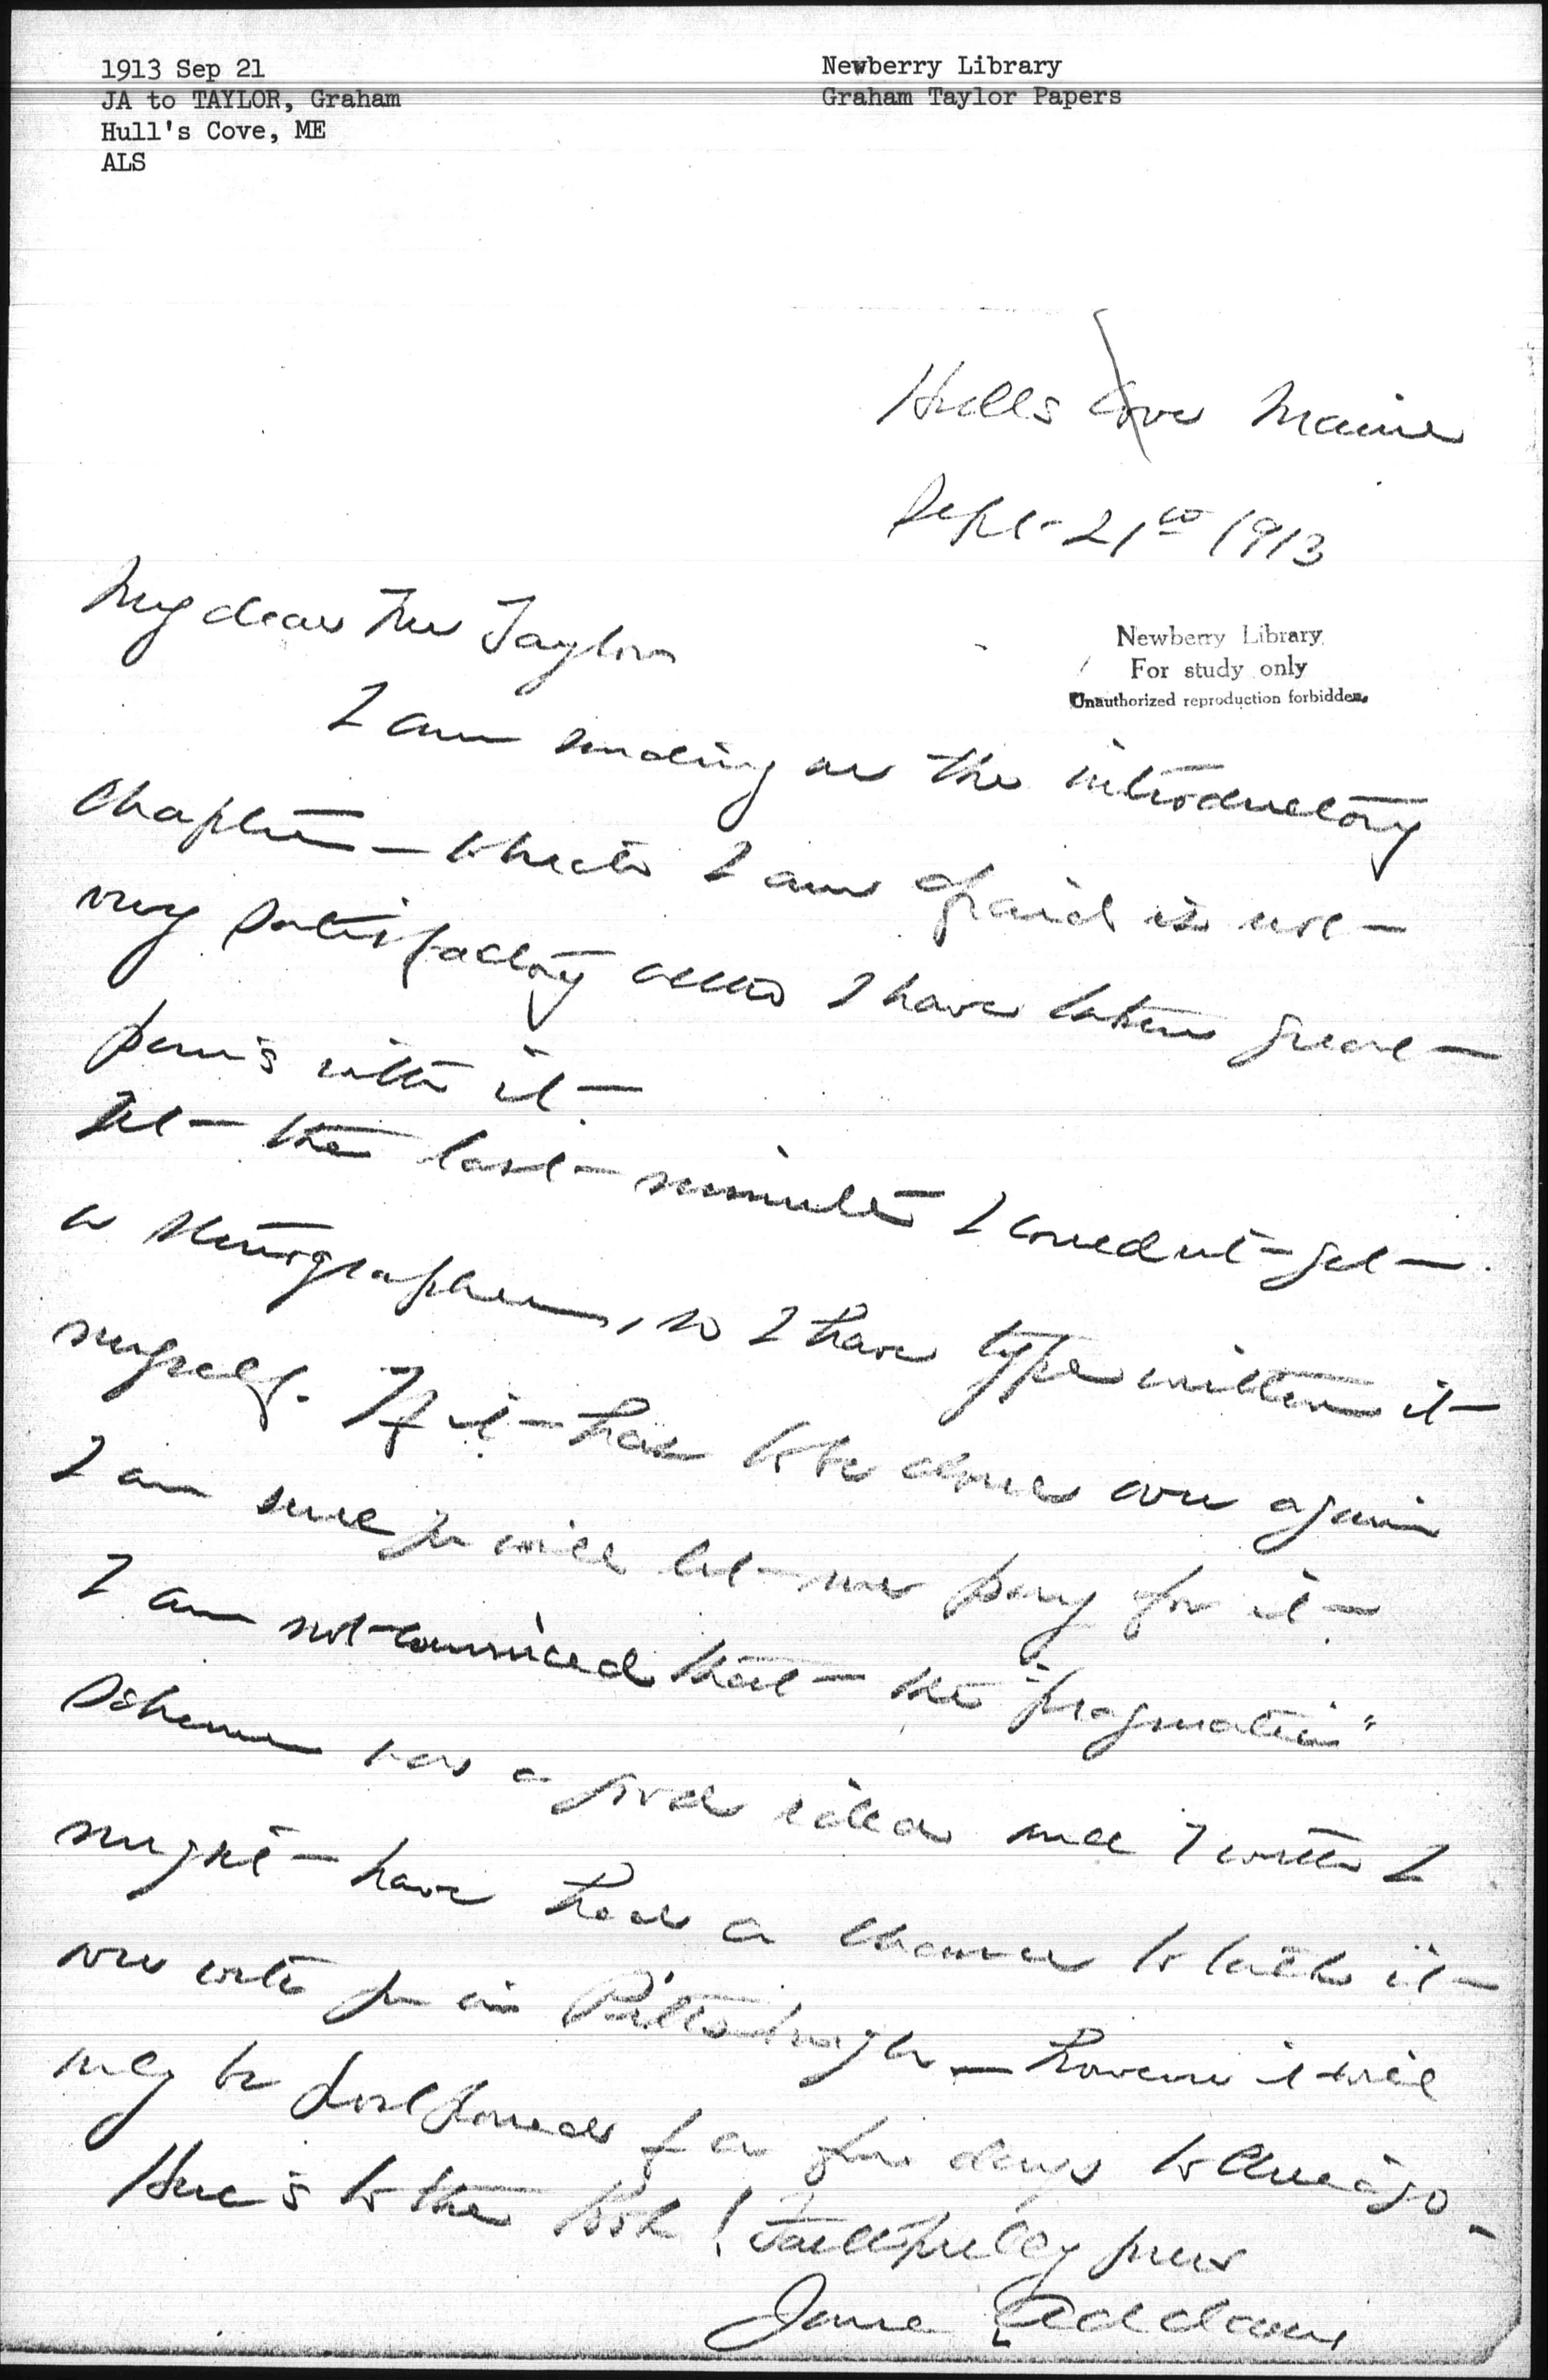 1913 Sep 21
JA to TAYLOR, Graham
Hull's Cove, ME
ALS
Newberry Library
Graham Taylor Papers
Hulls Cove Maine
Sept 21st 1913
My dear Mr Taylor
Newberry Library
For study only
Unauthorized reproduction forbidden.
I am sending on the introductory
chapter – which I am afraid is not
very satisfactory altho I have taken great
pains with it.
At the last minute I could n't get
a stenographer, so I have typewritten it
myself. If it has to be done over again
I am sure you will let me pay for it.
I am not convinced that the "pragmatic"
scheme was a good idea and I wish I
might have had a chance to talk it
over with you in Pittsburgh – however it will
only be postponed for a few days to Chicago –
Here's to the book! Faithfully yours
Jane Addams